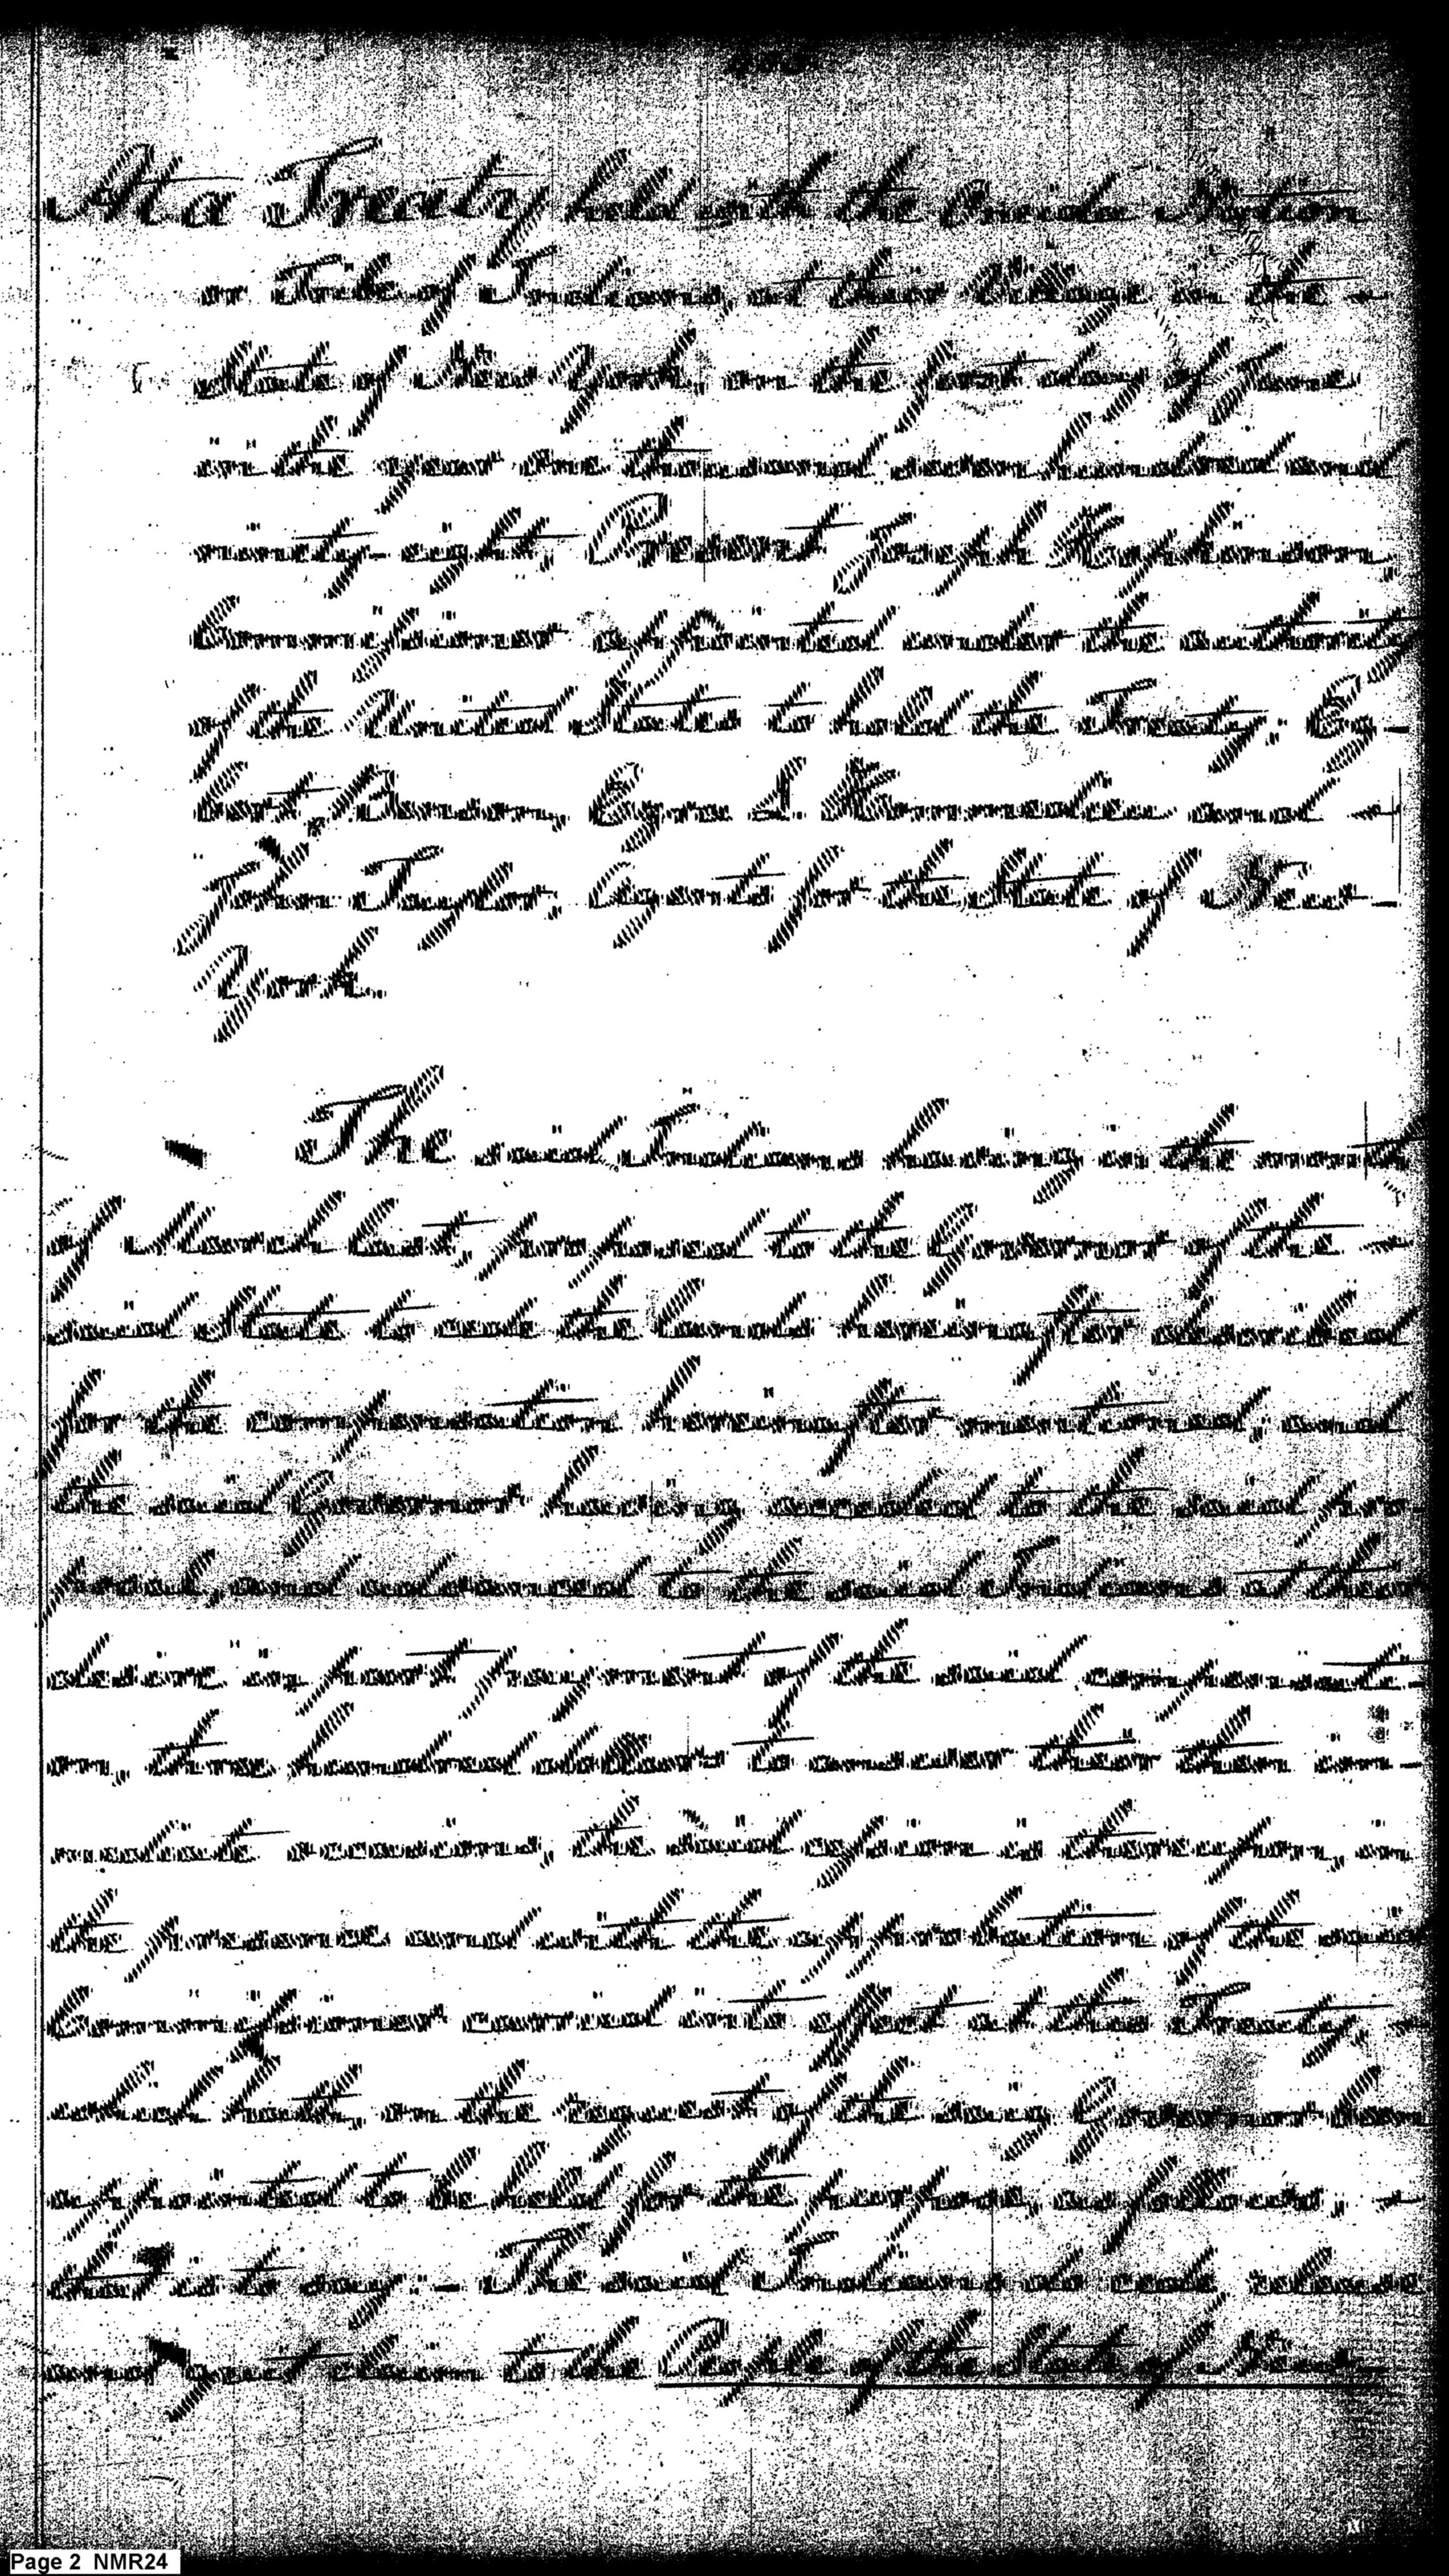 At a Treaty held with the Oneida Nation
or Tribe of Indians, at their Village in the
State of New York, on the first day of June
in the year one thousand seven hundred and
ninety-eight, Present Joseph Hopkinson,
Commissioner appointed under the authority
of the United States to hold the Treaty: Eg-
bert Benson, Ezra L. Hommedieu and
John Taylor, Agents for the State of New
York.
The said Indians having in the month
of March last, proposed to the Governor of the
said State to cede the lands hereinafter described
for the compensation hereinafter mentioned; and
the said Governor having acceded to the said pro-
posal, and advanced to the said Indians at their
desire in part payment of the said compensati-
on, three hundred dollars to answer their then im-
mediate occasions, the said cession is thereupon, in
the presence and with the approbation of the said
Commissioner carried into effect at this Treaty
which hath, on the request of the said Governor been
appointed to be held for the purpose, as follows,
that is to say:- The said Indians do cede, release
and quit claim to the People of the State of New
Page 2 NMR24